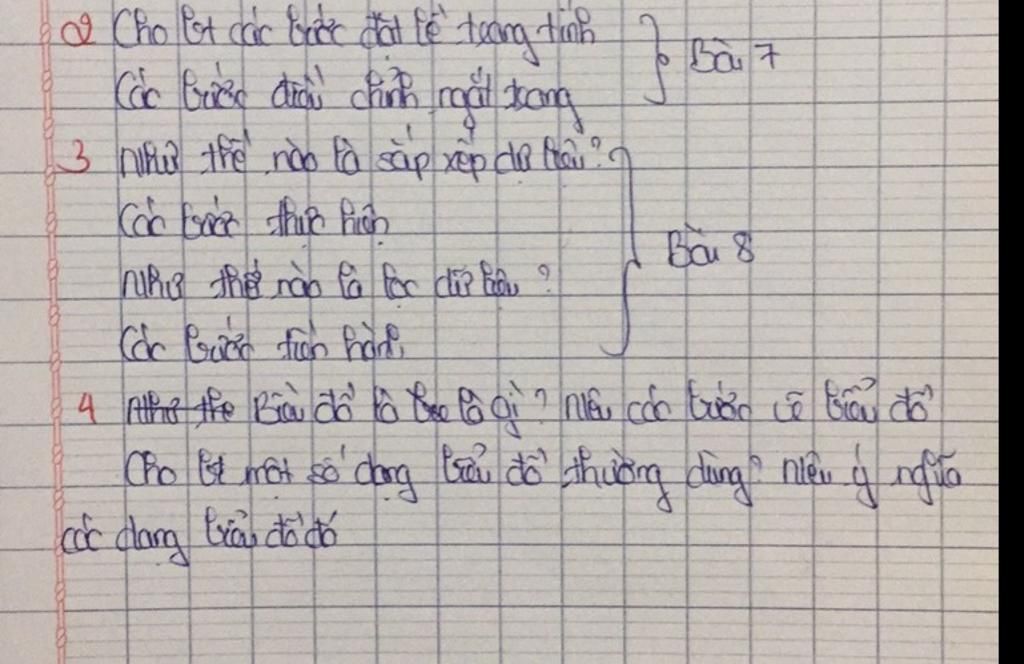 2 Cho biết các bước đặt lề trang tính
Các bước điều chỉnh ngắt trang
Bài 7
3 Như thế nào là sắp xếp dữ liệu?
Các bước thực hiện
Như thế nào là lọc dữ liệu?
Các bước tiến hành
Bài 8
4 Như thế Biểu đồ là gì? Nêu các bước vẽ biểu đồ
Cho biết một số dạng biểu đồ thường dùng? nêu ý nghĩa
các dạng biểu đồ đó